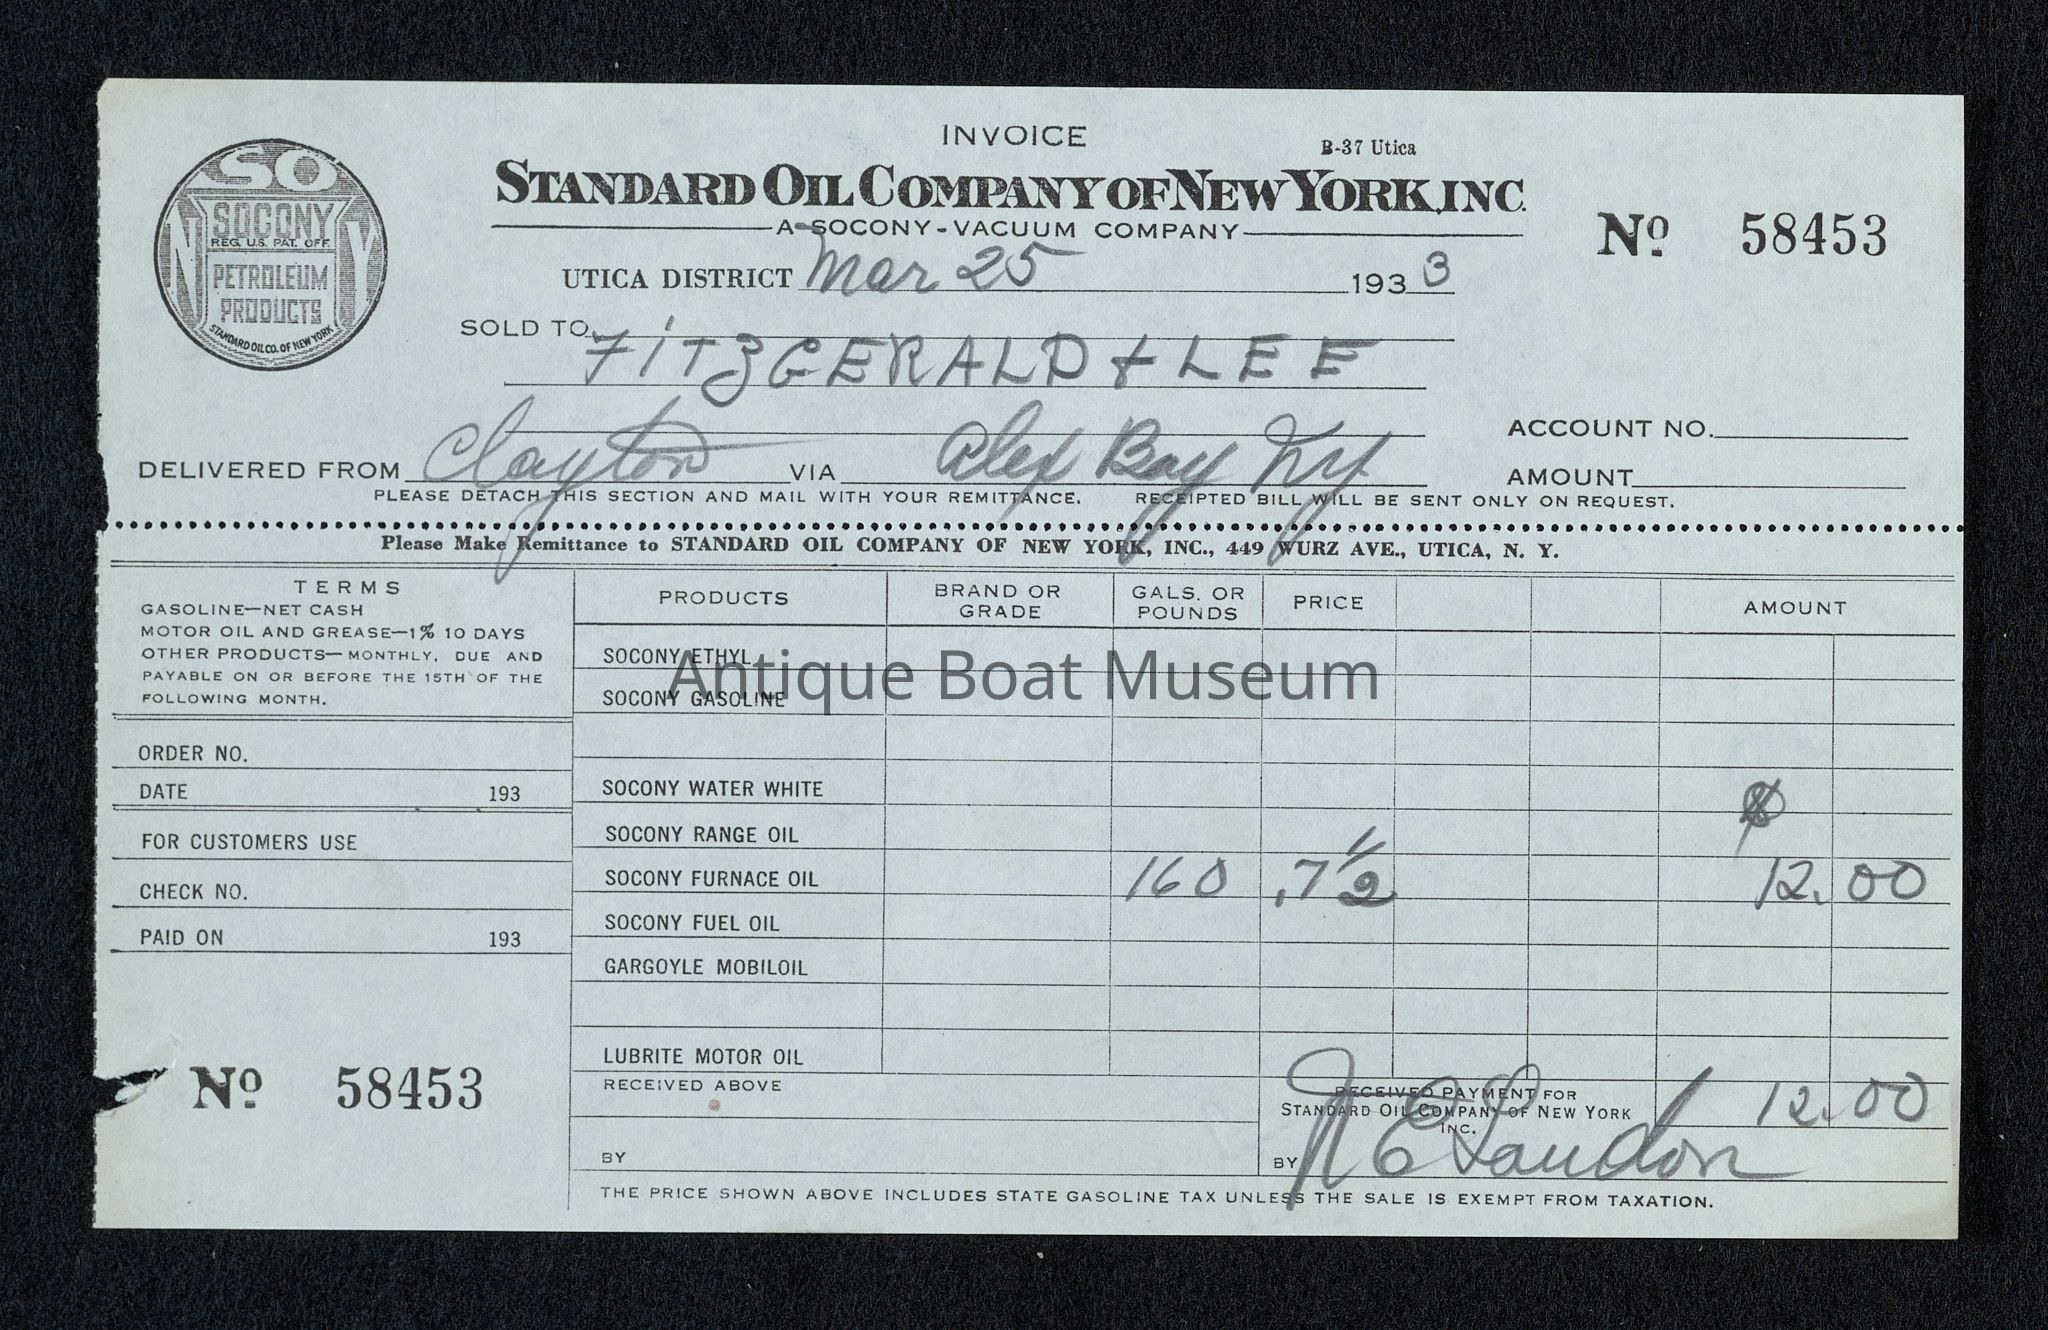 INVOICE
B-37 Utica
STANDARD OIL COMPANY OF NEW YORK, INC.
A SOCONY-VACUUM COMPANY
Nº 58453
SO
N Y
SOCONY
REG. U.S. PAT. OFF.
PETROLEUM
PRODUCTS
STANDARD OIL CO. OF NEW YORK
UTICA DISTRICT Mar 25 1933
SOLD TO
FITZGERALD & LEE
ACCOUNT NO.
DELIVERED FROM Clayton VIA Alex Bay NY
AMOUNT
PLEASE DETACH THIS SECTION AND MAIL WITH YOUR REMITTANCE. RECEIPTED BILL WILL BE SENT ONLY ON REQUEST.
Please Make Remittance to STANDARD OIL COMPANY OF NEW YORK, INC., 449 WURZ AVE., UTICA, N. Y.
TERMS
GASOLINE—NET CASH
MOTOR OIL AND GREASE—1% 10 DAYS
OTHER PRODUCTS—MONTHLY, DUE AND
PAYABLE ON OR BEFORE THE 15TH OF THE
FOLLOWING MONTH.
ORDER NO.
DATE 193
FOR CUSTOMERS USE
CHECK NO.
PAID ON 193
Nº 58453
PRODUCTS BRAND OR GRADE GALS. OR POUNDS PRICE AMOUNT
SOCONY ETHYL
Antique Boat Museum
SOCONY GASOLINE
SOCONY WATER WHITE
$
SOCONY RANGE OIL
SOCONY FURNACE OIL 160 .7 1/2 12.00
SOCONY FUEL OIL
GARGOYLE MOBILOIL
LUBRITE MOTOR OIL
RECEIVED ABOVE
BY
RECEIVED PAYMENT FOR
STANDARD OIL COMPANY OF NEW YORK
INC.
12.00
BY
THE PRICE SHOWN ABOVE INCLUDES STATE GASOLINE TAX UNLESS THE SALE IS EXEMPT FROM TAXATION.